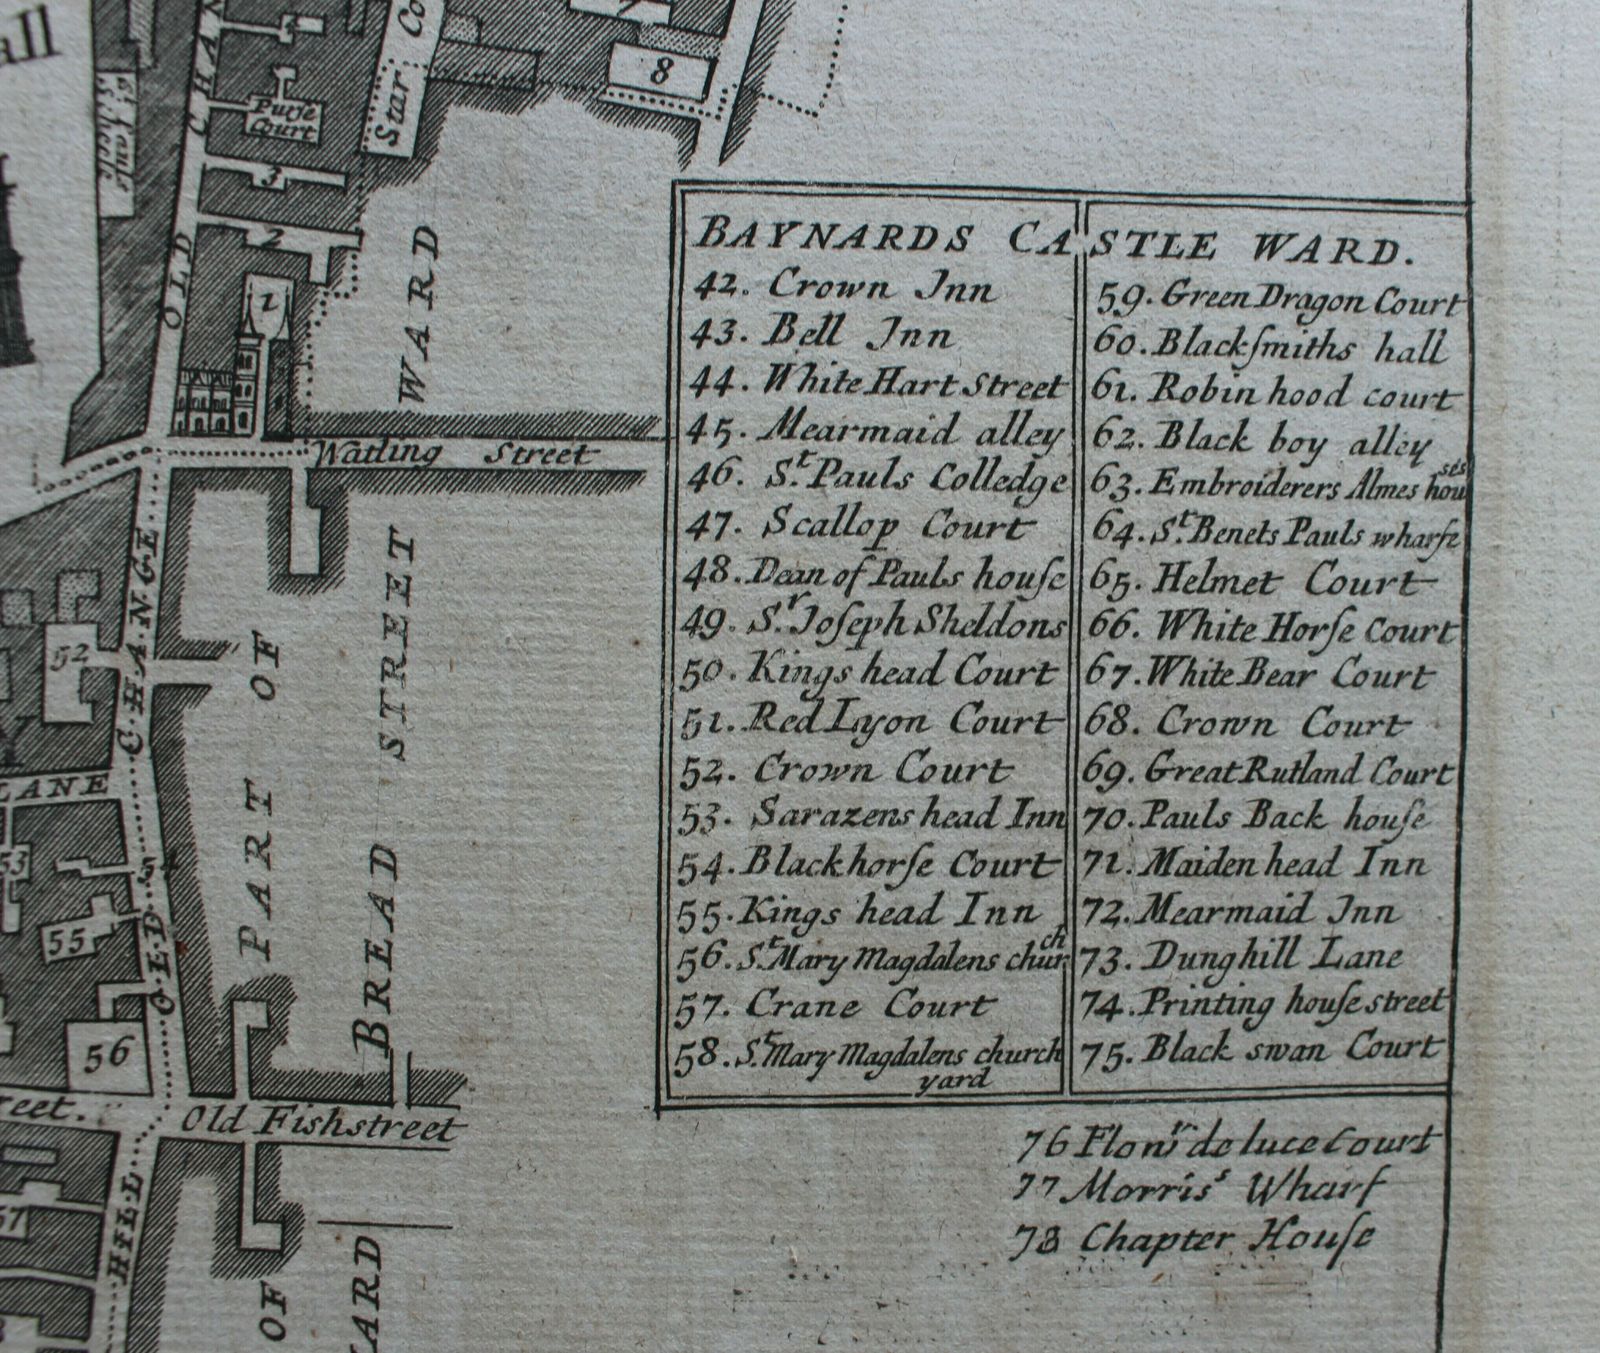 all
St. Pauls
School
OLD CHAN
Purse
Court
Star Co
7
8
3
2
1
WARD
Watling Street
OLD CHANGE
PART OF
BREAD STREET
52
LANE
53
54
55
56
reet.
Old Fishstreet
57
HILL
OF
ARD
BAYNARDS CASTLE WARD.
42. Crown Inn
43. Bell Inn
44. White Hart Street
45. Mearmaid alley
46. St. Pauls Colledge
47. Scallop Court
48. Dean of Pauls houſe
49. Sr. Joſeph Sheldons
50. Kings head Court
51. Red Lyon Court
52. Crown Court
53. Sarazens head Inn
54. Blackhorſe Court
55. Kings head Inn
56. St. Mary Magdalens church
57. Crane Court
58. St. Mary Magdalens church
yard
59. Green Dragon Court
60. Blackſmiths hall
61. Robin hood court
62. Black boy alley
63. Embroiderers Almes houses
64. St. Benets Pauls wharfe
65. Helmet Court
66. White Horſe Court
67. White Bear Court
68. Crown Court
69. Great Rutland Court
70. Pauls Back houſe
71. Maiden head Inn
72. Mearmaid Inn
73. Dunghill Lane
74. Printing houſe street
75. Black swan Court
76 Flowr de luce Court
77 Morriss Wharf
78 Chapter Houſe